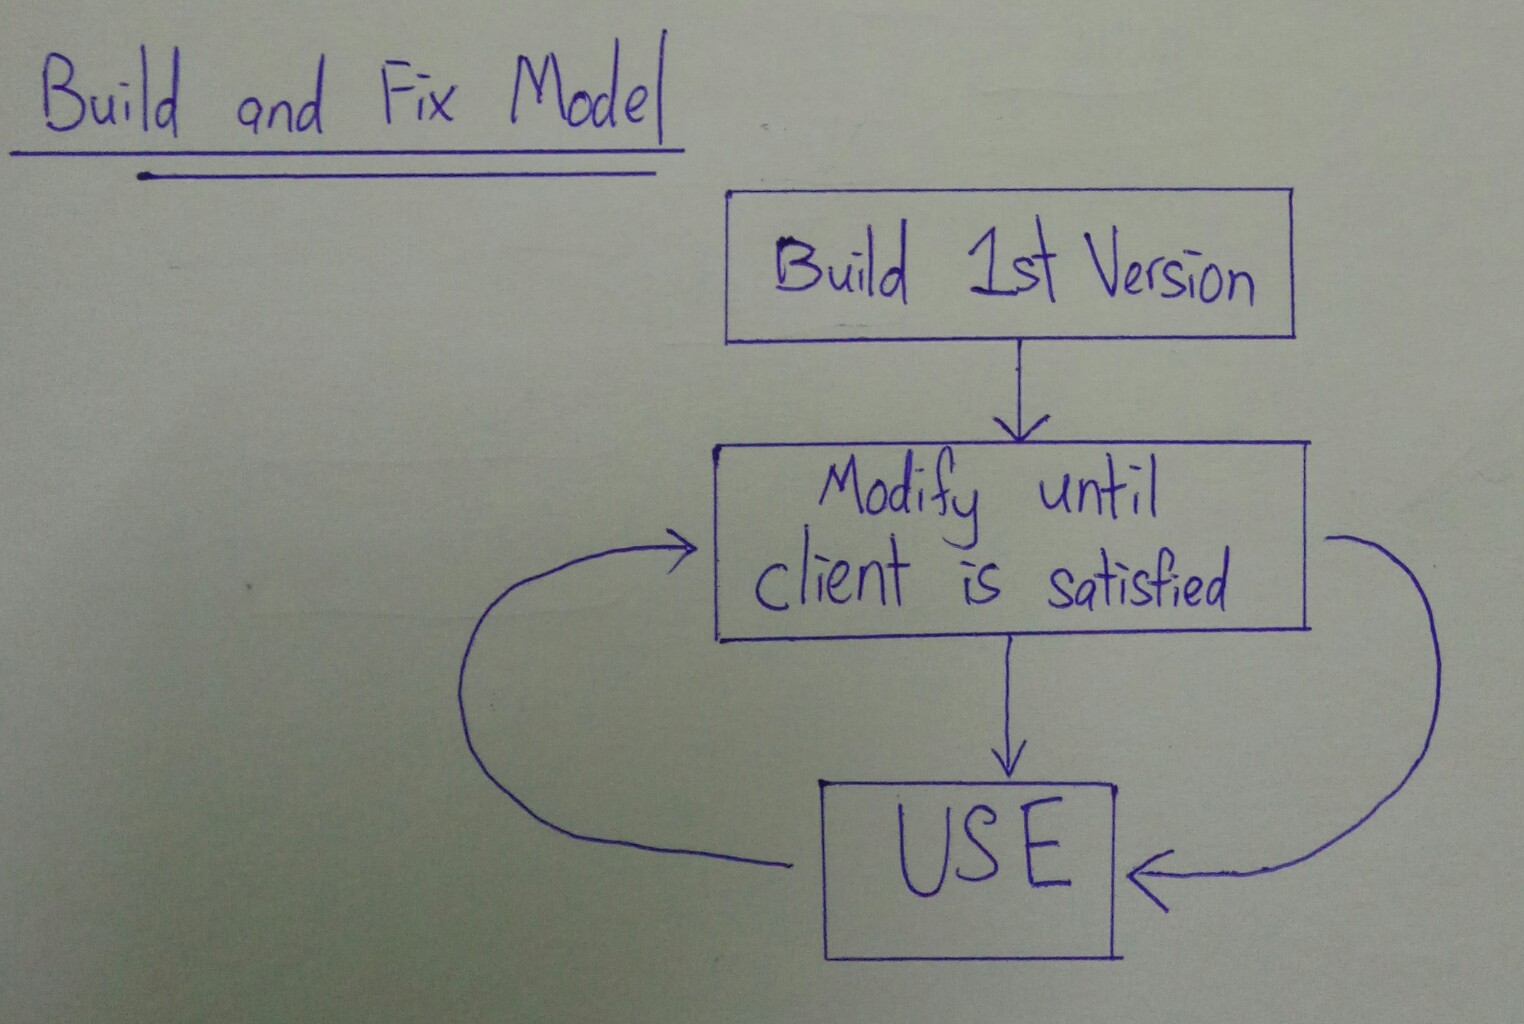 Build and Fix Model
Build 1st Version
Modify until
client is satisfied
USE